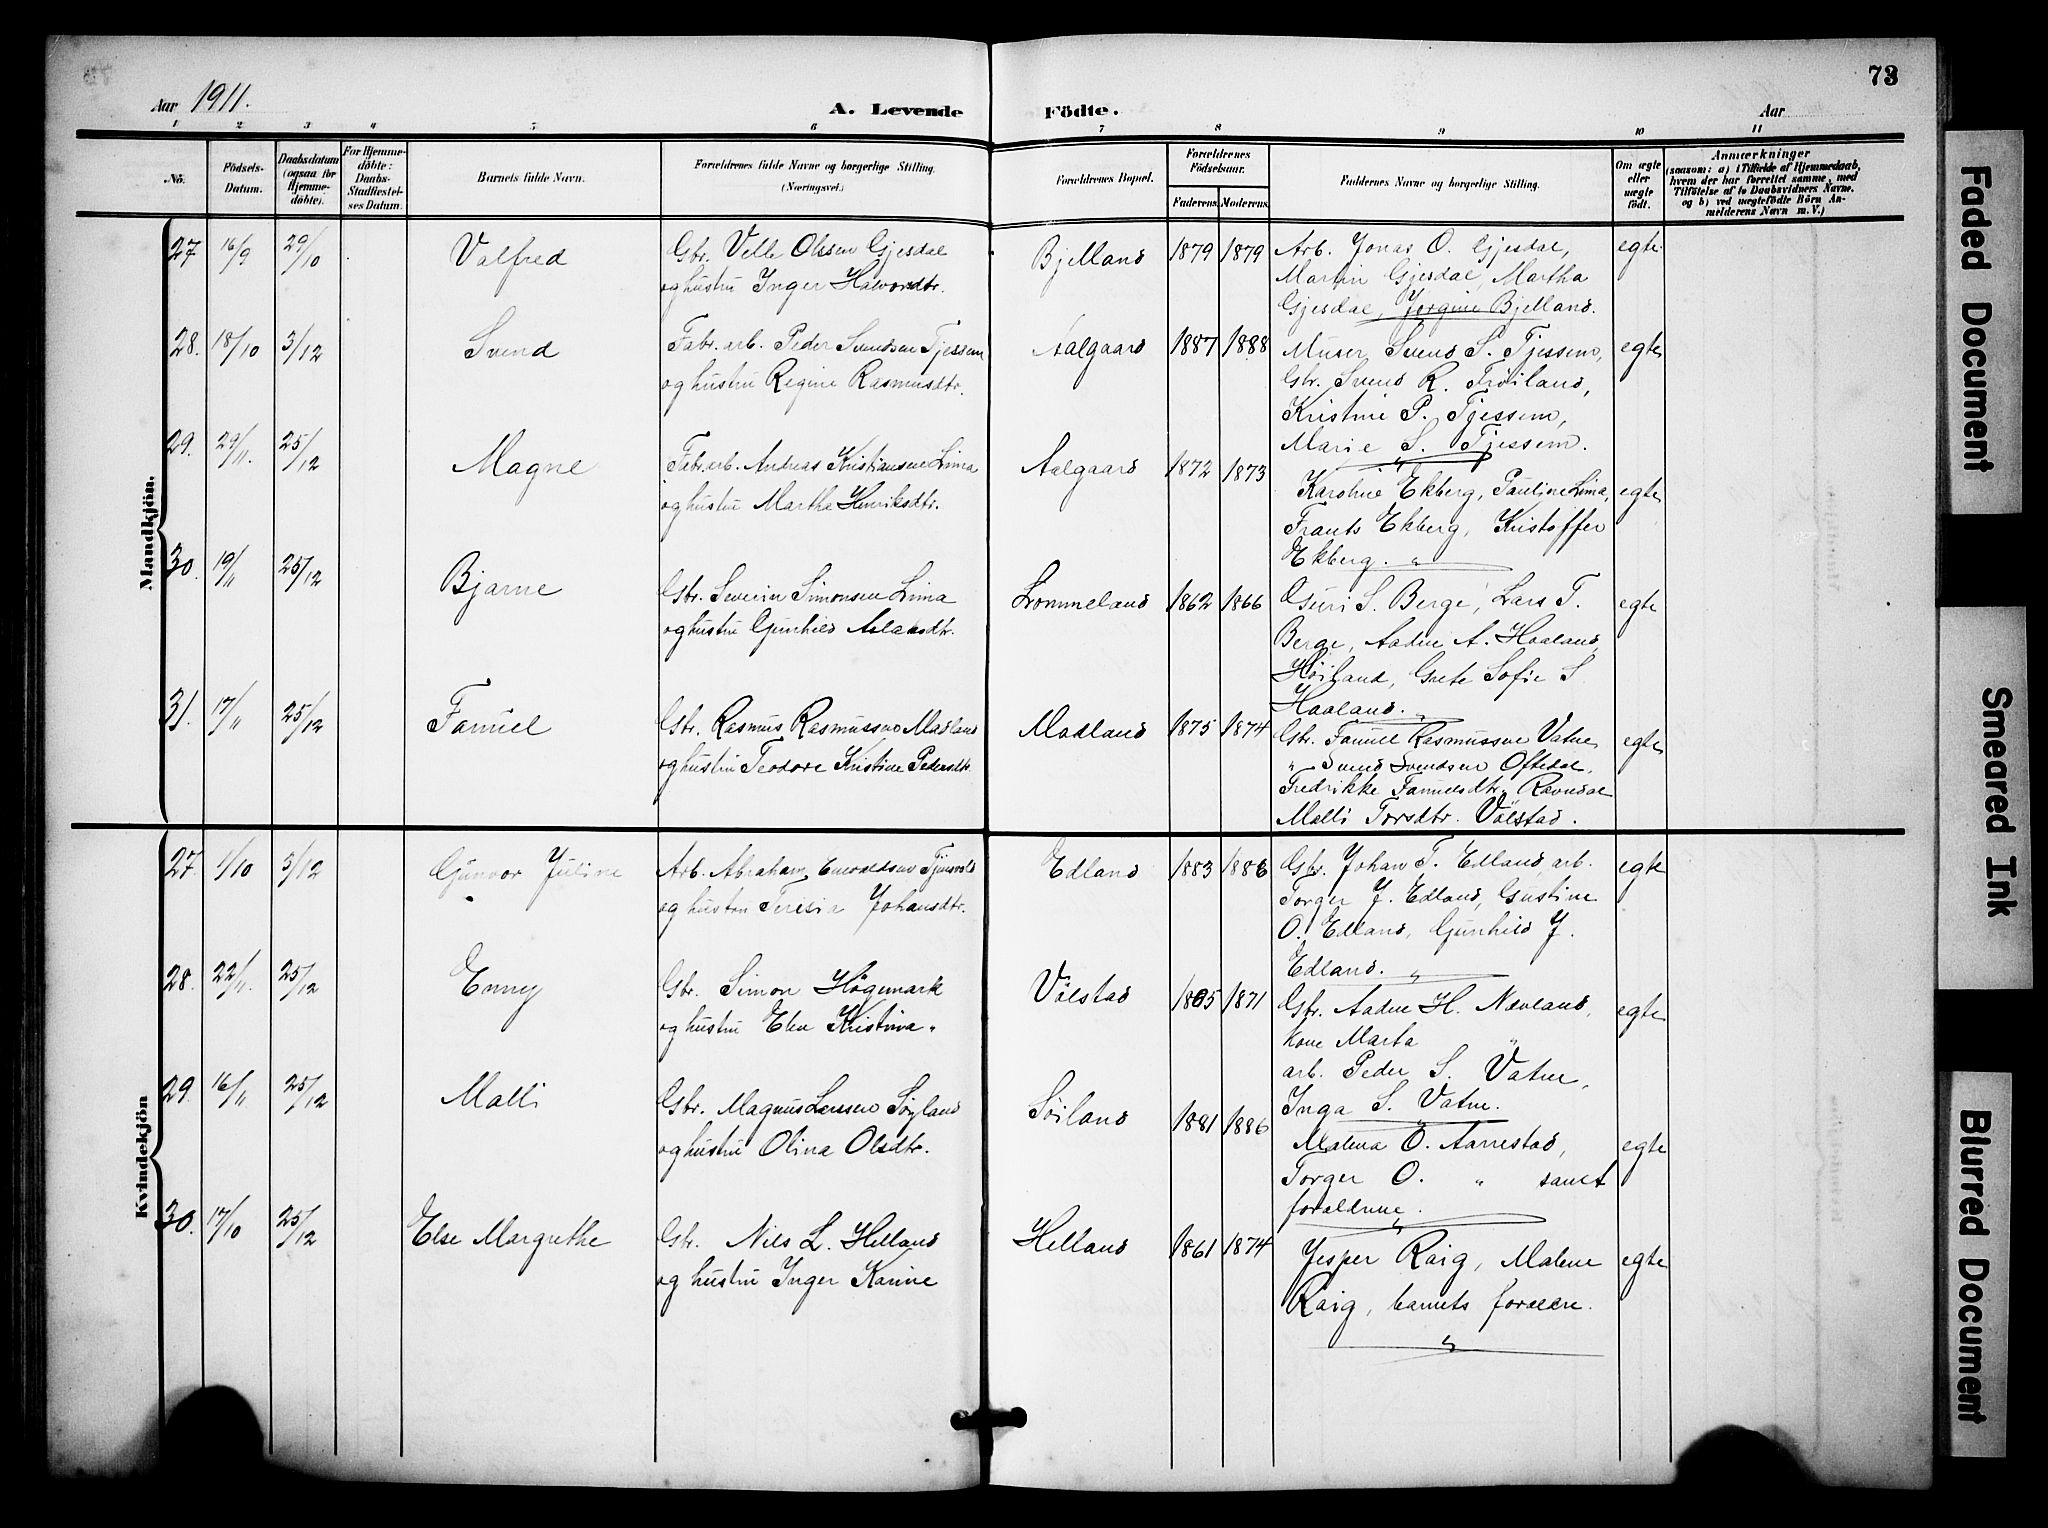 73
Aar 1911.
A. Levende Födte.
Aar
1 2 3 4 5 6 7 8 9 10 11
No.
Födsels-
Datum.
Daabsdatum
(ogsaa for
Hjemme-
döbte).
For Hjemme-
döbte:
Daabs-
Stadfæstel-
ses Datum.
Barnets fulde Navn.
Forældrenes fulde Navne og borgerlige Stilling.
(Næringsvei.)
Forældrenes Bopæl.
Forældrenes
Födselsaar.
Faderens. Moderens.
Faddernes Navne og borgerlige Stilling.
Om ægte
eller
uægte
födt.
Anmærkninger
(saasom: a) i Tilfælde af Hjemmedaab,
hvem der har forrettet samme, med
Tilföielse af to Daabsvidners Navne.
og b) ved uægtefödte Börn An-
melderens Navn m. V.)
Mandkjön.
27 16/9 29/10 Valfred Gbr. Velle Olssen Gjesdal Bjelland 1879 1879 Arb. Jonas O. Gjesdal, egte
og hustru Inger Halvordtr. Martin Gjesdal, Martha
Gjesdal, Jorgine Bjelland.
28. 18/10 3/12 Svend Fabr. arb. Peder Svendsen Tjessem Aalgaard 1887 1888 Murer Svend S. Tjessem, egte
og hustru Regine Rasmusdtr. Gbr. Svend R. Fröiland,
Kristine P. Tjessem,
Marie S. Tjessem.
29. 29/11. 25/12 Magne Fabr. arb. Andreas Kristiansen Lima Aalgaard 1872 1873 Karoline Ekberg, Pauline Lima, egte
og hustru Martha Henriksdtr. Frants Ekberg, Kristoffer
Ekberg. "
30. 19/11 25/12 Bjarne Gbr. Severin Simonsen Lima Lommeland 1862 1866 Guri S. Berge, Lars T. egte
og hustru Gunhild Aslaksdtr. Berge, Aaden A. Haaland,
Höiland, Grete Sofie S.
Haaland. "
31. 17/11 25/12 Fanuel Gbr. Rasmus Rasmussen Madland Madland 1875 1874 Gbr. Fanuel Rasmussen Vatne, egte
og hustru Teodore Kristine Pedersdtr. " Svend Svendsen Oftedal,
Fredrikke Fanuelsdtr. Ravndal
Malli Torsdtr. Völstad.
Kvindekjön
27. 1/10 3/12 Gunvor Juline Arb. Abraham Tjensvold Edland 1883 1886 Gbr. Johan T. Edland, arb. egte
og hustru Teresia Johansdtr. Torger J. Edland, Gustine
O. Edland, Gunhild J.
Edland. "
28. 22/11. 25/12 Enny Gbr. Simon Högemark Völstad 1871 Gbr. Aaden H. Nævland, egte
og hustru Elen Kristina " kone Marta "
arb. Peder S. Vatne,
Inga S. Vatne.
29. 16/11 25/12 Malli Gbr. Magnus Larssen Söyland Söiland 1881 1886 Malena O. Aarrestad, egte
og hustru Olina Olsdtr. Torger O. " samt
foraldrene.
30. 17/10 25/12 Else Margrethe Gbr. Nils L. Helland Helland 1861 1874 Jesper Raig, Malene egte
og hustru Inger Karine Raig, barnets foraldre.
"
Faded Document
Smeared Ink
Blurred Document